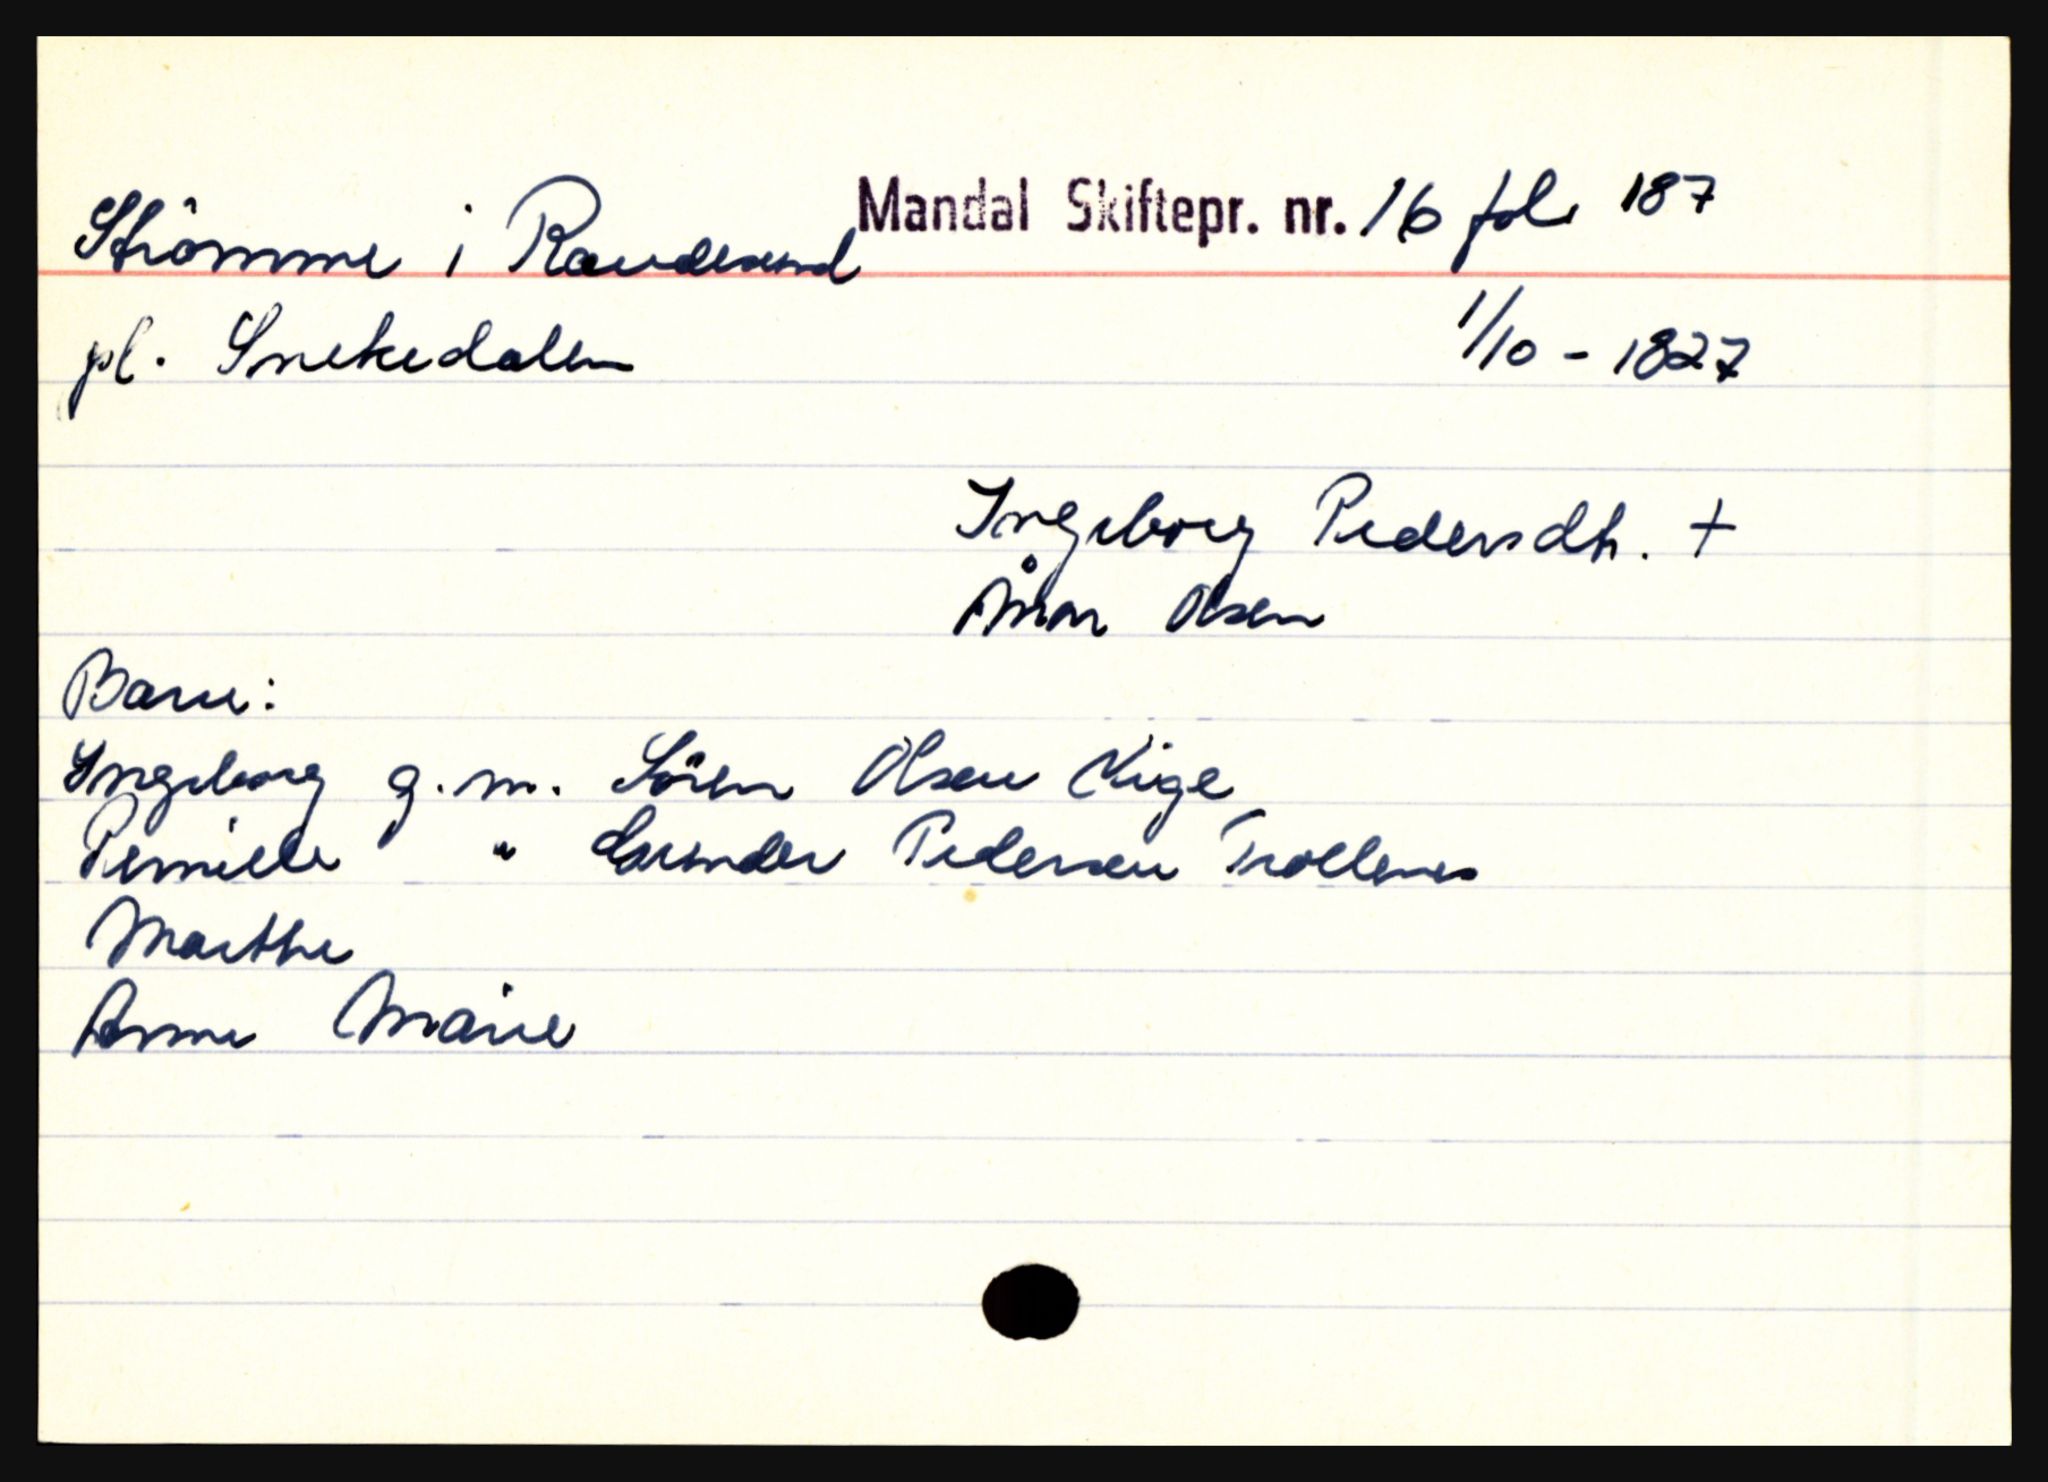 Strömme i Randesund Mandal Skiftepr. nr. 16 fol. 187
pl. Snekedalen 1/10 - 1827
Ingeborg Pedersdtr. +
Ånon Olsen
Barn:
Ingeborg g. m. Sören Olsen Kige
Pernille " Gunder Pedersen Trollenes
Marthe
Anne Marie